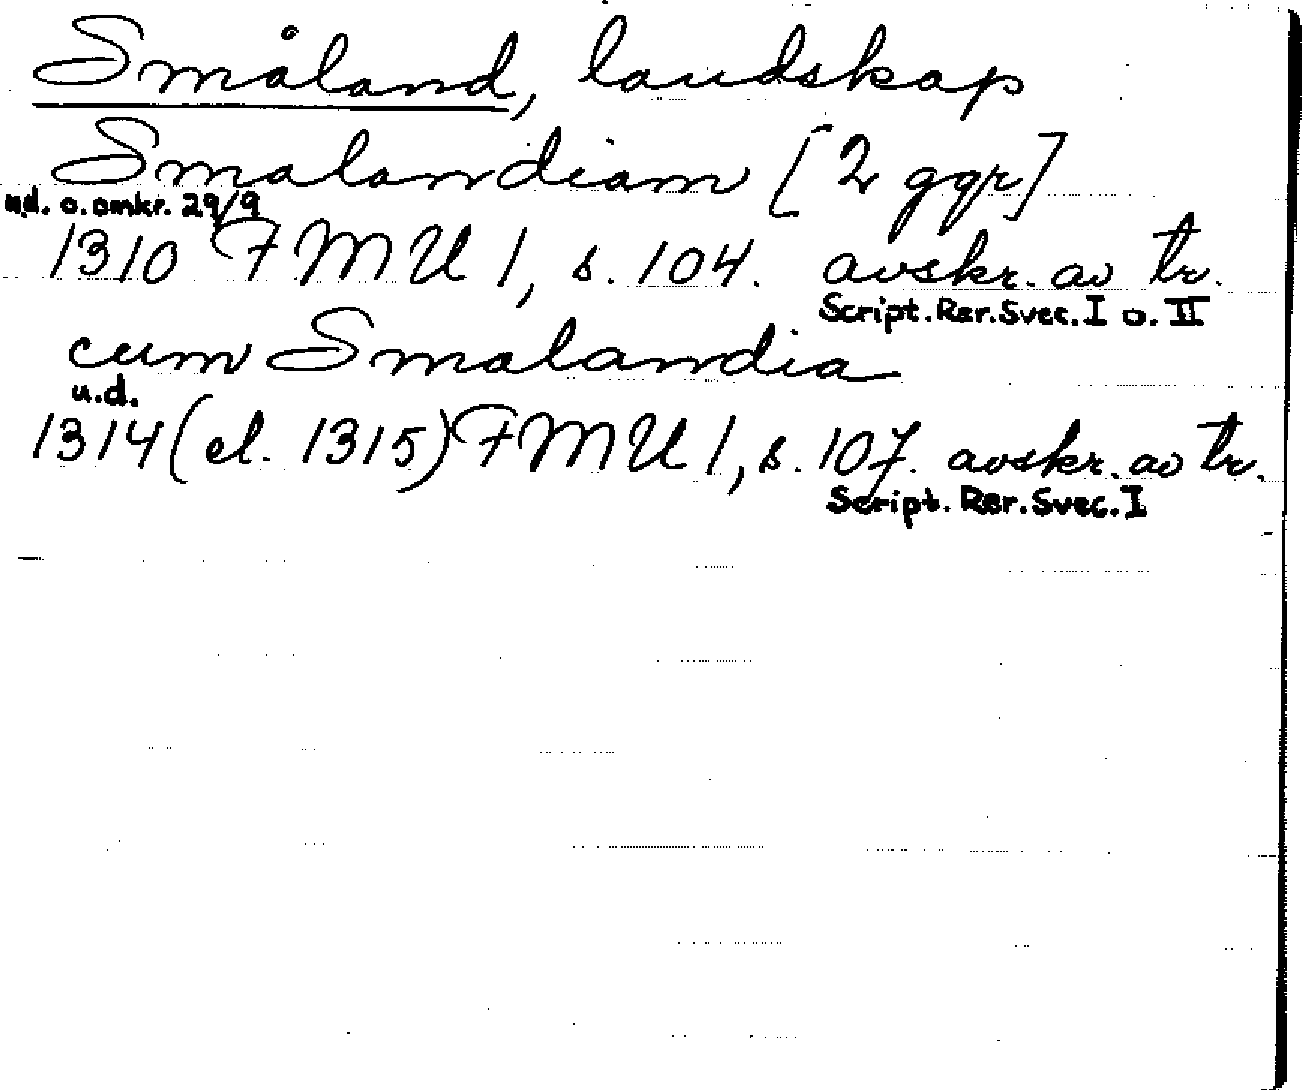 Småland, landskap
Smalandiam [2 ggr]
u.d. o. omkr. 29/9
1310 FMU 1, s. 104. avskr. av tr.
Script. Rer. Svec. I o. II
cum Smalandia
u.d.
1314 (el. 1315) FMU 1, s. 107. avskr. av tr.
Script. Rer. Svec. I